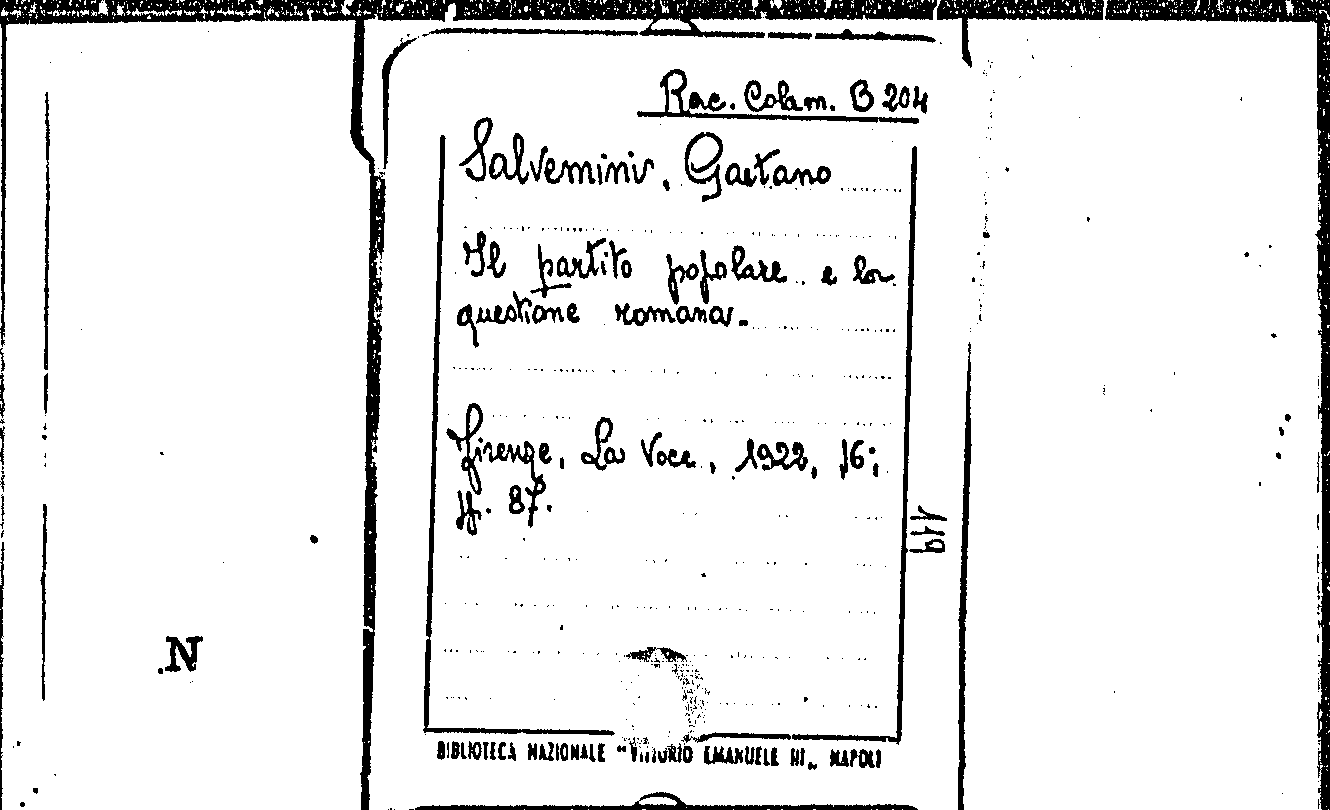 Rac. Colam. B 204
Salvemini, Gaetano
Il partito popolare e la
questione romana.
Firenze, La Voce, 1922, 16°,
pp. 87.
N
BIBLIOTECA NAZIONALE "VITTORIO EMANUELE III„ NAPOLI